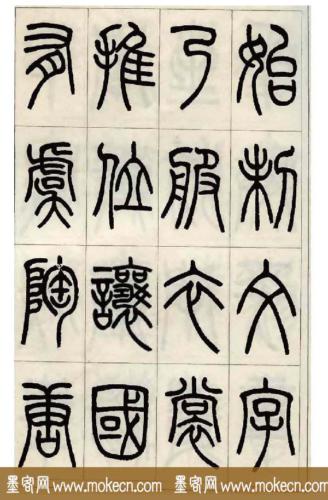 始制文字
乃服衣裳
推位讓國
有虞陶唐
墨客网 www.mokecn.com 墨客网 www.mokecn.com